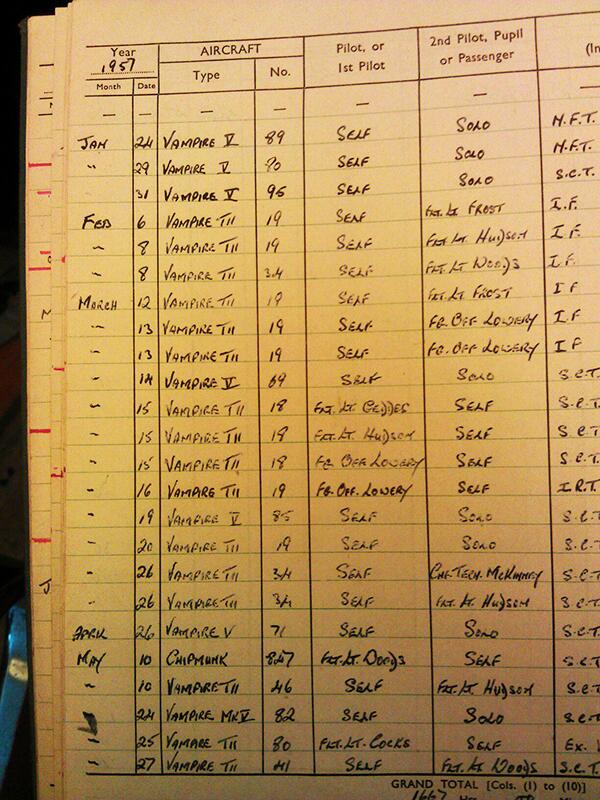 Year 1957 AIRCRAFT Pilot, or 1st Pilot 2nd Pilot, Pupil or Passenger (In
Month Date Type No.
— — — — — —
JAN 24 VAMPIRE V 89 SELF SOLO N.F.T.
" 29 VAMPIRE V 80 SELF SOLO N.F.T.
31 VAMPIRE V 95 SELF SOLO S.C.T.
FEB 6 VAMPIRE TII 19 SELF FLT. LT FROST I.F.
" 8 VAMPIRE TII 19 SELF FLT. LT HUDSON I.F.
" 8 VAMPIRE TII 34 SELF FLT. LT WOODS I.F.
MARCH 12 VAMPIRE TII 19 SELF FLT. LT FROST I F
" 13 VAMPIRE TII 19 SELF FG. OFF LOWERY I.F
" 13 VAMPIRE TII 19 SELF FG. OFF LOWERY I F
" 14 VAMPIRE V 69 SELF SOLO S.C.T.
" 15 VAMPIRE TII 18 FLT. LT. GEDDES SELF S.C.T.
" 15 VAMPIRE TII 18 FLT. LT. HUDSON SELF S.C.T.
" 15 VAMPIRE TII 18 FG OFF LOWERY SELF S.C.T.
" 16 VAMPIRE TII 19 FG. OFF. LOWERY SELF I.R.T.
" 19 VAMPIRE V 85 SELF SOLO S.C.T.
" 20 VAMPIRE TII 19 SELF SOLO S.C.T.
" 26 VAMPIRE TII 34 SELF CHF. TECH. McKINNEY S.C.T.
" 26 VAMPIRE TII 34 SELF FLT. LT HUDSON S.C.T.
APRIL 26 VAMPIRE V 71 SELF SOLO S.C.T.
MAY 10 CHIPMUNK 847 FLT. LT. WOODS SELF S.C.T.
" 10 VAMPIRE TII 46 SELF FLT. LT HUDSON S.C.T.
24 VAMPIRE MK V 82 SELF SOLO S.C.T.
" 25 VAMPIRE TII 80 FLT. LT. COCKS SELF Ex.
" 27 VAMPIRE TII 41 SELF FLT. LT WOODS S.C.T.
GRAND TOTAL [Cols. (1) to (10)]